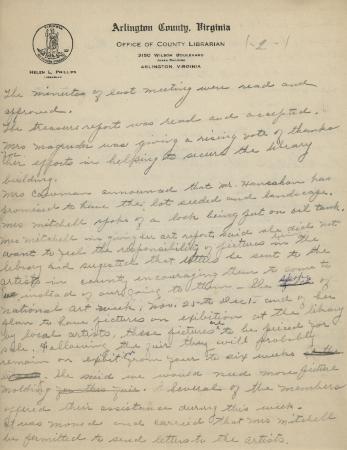 Arlington County, Virginia
OFFICE OF COUNTY LIBRARIAN
2150 WILSON BOULEVARD
ARLINGTON, VIRGINIA
HELEN L. PHILLIPS
LIBRARIAN
- 2 -
The minutes of last meeting were read and
approved.
The treasure report was read and accepted.
Mrs Magruder was giving a rising vote of thanks
for
her efforts in helping to secure the library
building.
Mrs announced that Mr. Hanrahan has
promised to have the lot seeded and landscape.
Mrs Mitchell spoke of a lock being put on oil tank.
Mrs Mitchell in giving her art report said she did not
want to feel the responsibility of pictures in the
library and sugested that letters be sent to the
artists in county encouraging them to come to
us instead of our going to them - She spoke of
national art week, Nov. 25 to Dec 1 - and of her
plan to have pictures on exibition at the library
by local artists, these pictures to be priced for
sale. Following the fair they will probably
remain on exhibit from four to six weeks
She said we would need more picture
molding Several of the members
offered their assistance during this week.
It was moved and carried that Mrs Mitchell
be permitted to send letters to the artists.